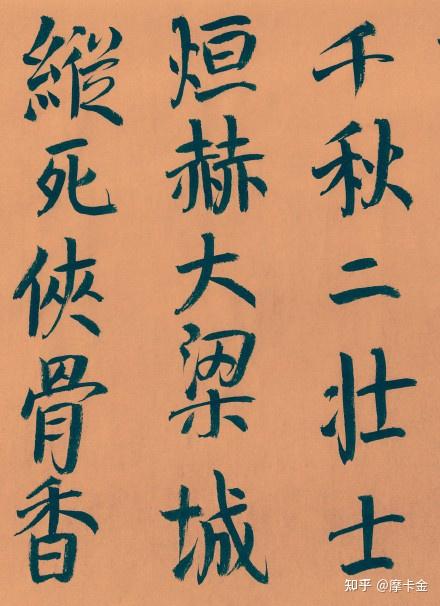 千秋二壮士
烜赫大梁城
縱死俠骨香
知乎 @摩卡金